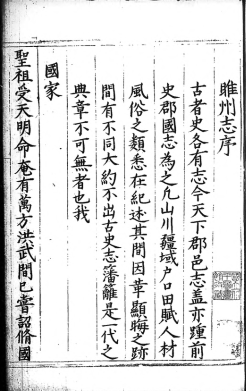 睢州志序
古者史各有志今天下郡邑志盖亦踵前
史郡國志為之凡山川疆域户口田賦人材
風俗之類悉在紀述其間因革顯晦之跡
間有不同大約不出古史志籓籬是一代之
典章不可無者也我
國家
聖祖受天明命奄有萬方洪武間已嘗詔脩國